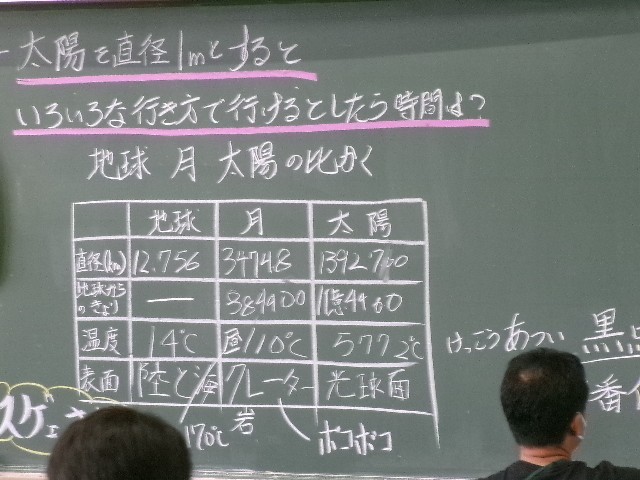 太陽を直径1mとすると
いろいろな行き方で行けるとしたら時間は?
地球 月 太陽の比かく
地球 月 太陽
直径(km) 12.756 3474.8 1392700
地球からのきょり ー 384400 1億4960
温度 14℃ 昼110℃ 5772℃
表面 陸と海 クレーター 光球面
170℃ 岩 ボコボコ
けっこうあつい 黒点
番
スケ